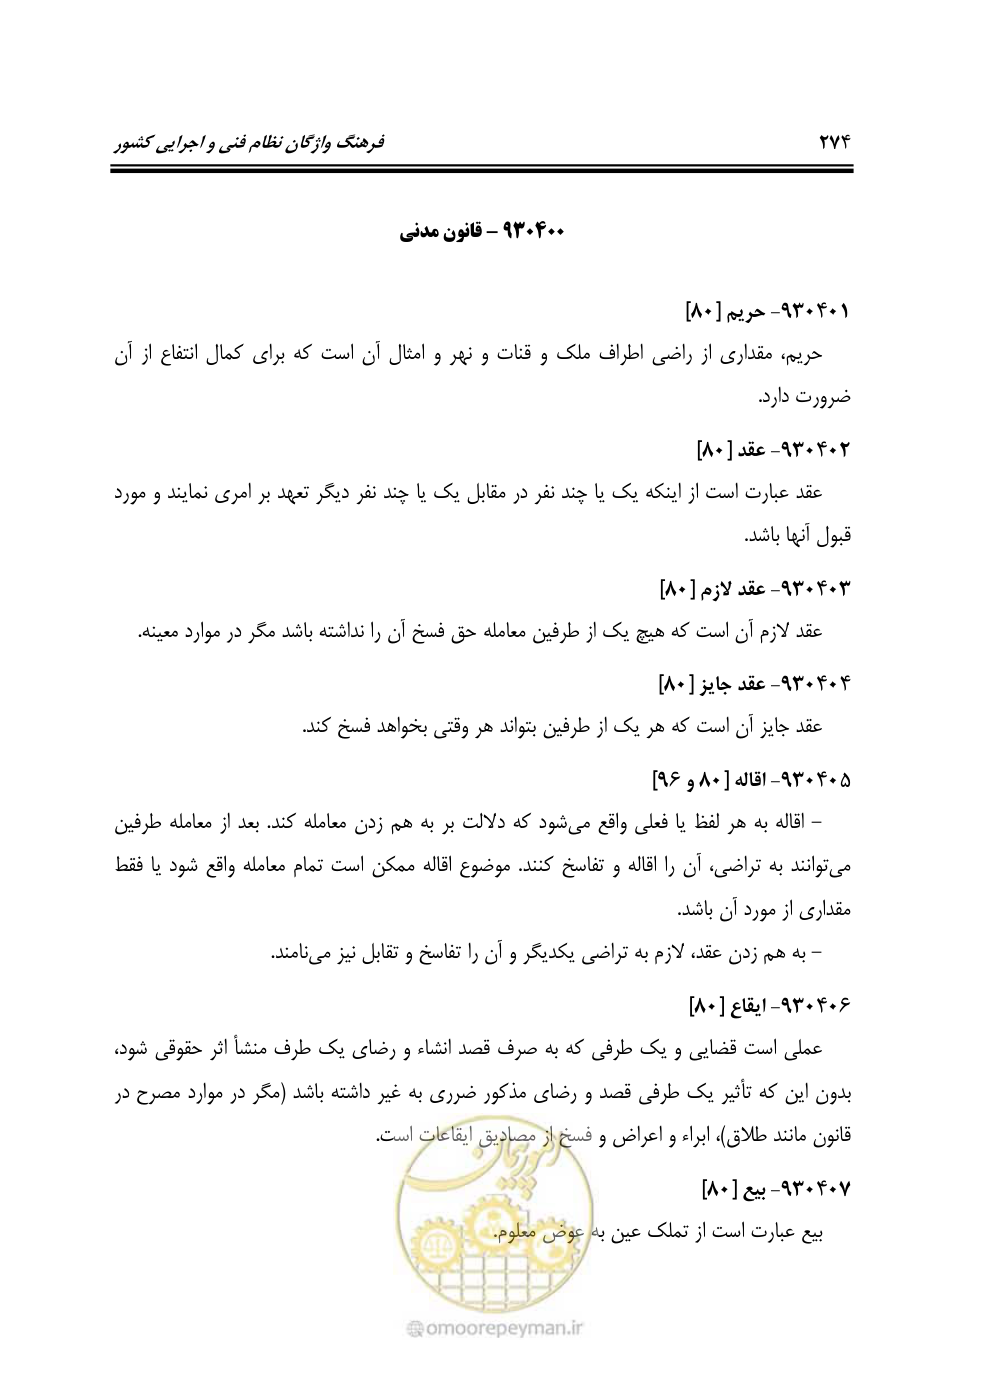 ۲۷۴ فرهنگ واژگان نظام فنی و اجرایی کشور
۹۳۰۴۰۰ – قانون مدنی
۹۳۰۴۰۱– حریم [۸۰]
حریم، مقداری از راضی اطراف ملک و قنات و نهر و امثال آن است که برای کمال انتفاع از آن
ضرورت دارد.
۹۳۰۴۰۲– عقد [۸۰]
عقد عبارت است از اینکه یک یا چند نفر در مقابل یک یا چند نفر دیگر تعهد بر امری نمایند و مورد
قبول آنها باشد.
۹۳۰۴۰۳– عقد لازم [۸۰]
عقد لازم آن است که هیچ یک از طرفین معامله حق فسخ آن را نداشته باشد مگر در موارد معینه.
۹۳۰۴۰۴– عقد جایز [۸۰]
عقد جایز آن است که هر یک از طرفین بتواند هر وقتی بخواهد فسخ کند.
۹۳۰۴۰۵– اقاله [۸۰ و ۹۶]
– اقاله به هر لفظ یا فعلی واقع می‌شود که دلالت بر به هم زدن معامله کند. بعد از معامله طرفین
می‌توانند به تراضی، آن را اقاله و تفاسخ کنند. موضوع اقاله ممکن است تمام معامله واقع شود یا فقط
مقداری از مورد آن باشد.
– به هم زدن عقد، لازم به تراضی یکدیگر و آن را تفاسخ و تقابل نیز می‌نامند.
۹۳۰۴۰۶– ایقاع [۸۰]
عملی است قضایی و یک طرفی که به صرف قصد انشاء و رضای یک طرف منشأ اثر حقوقی شود،
بدون این که تأثیر یک طرفی قصد و رضای مذکور ضرری به غیر داشته باشد (مگر در موارد مصرح در
قانون مانند طلاق)، ابراء و اعراض و فسخ از مصادیق ایقاعات است.
۹۳۰۴۰۷– بیع [۸۰]
بیع عبارت است از تملک عین به عوض معلوم.
امور پیمان
@omoorepeyman.ir